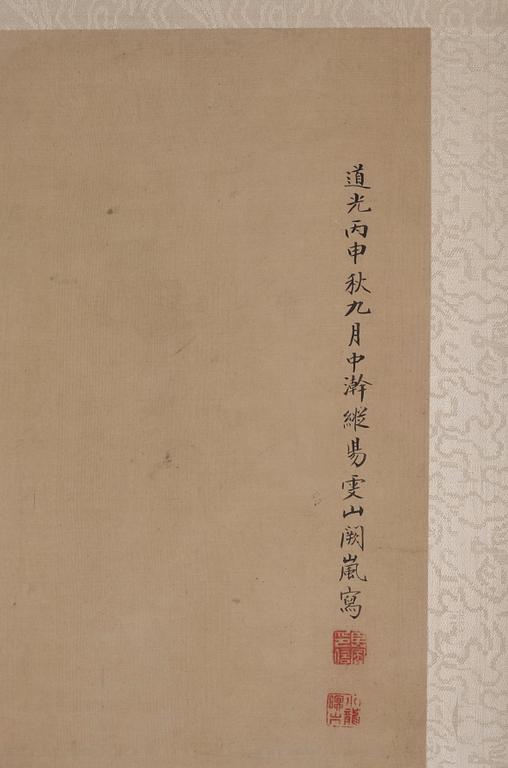 道光丙申秋九月中澣縱昜雯山闕嵐寫